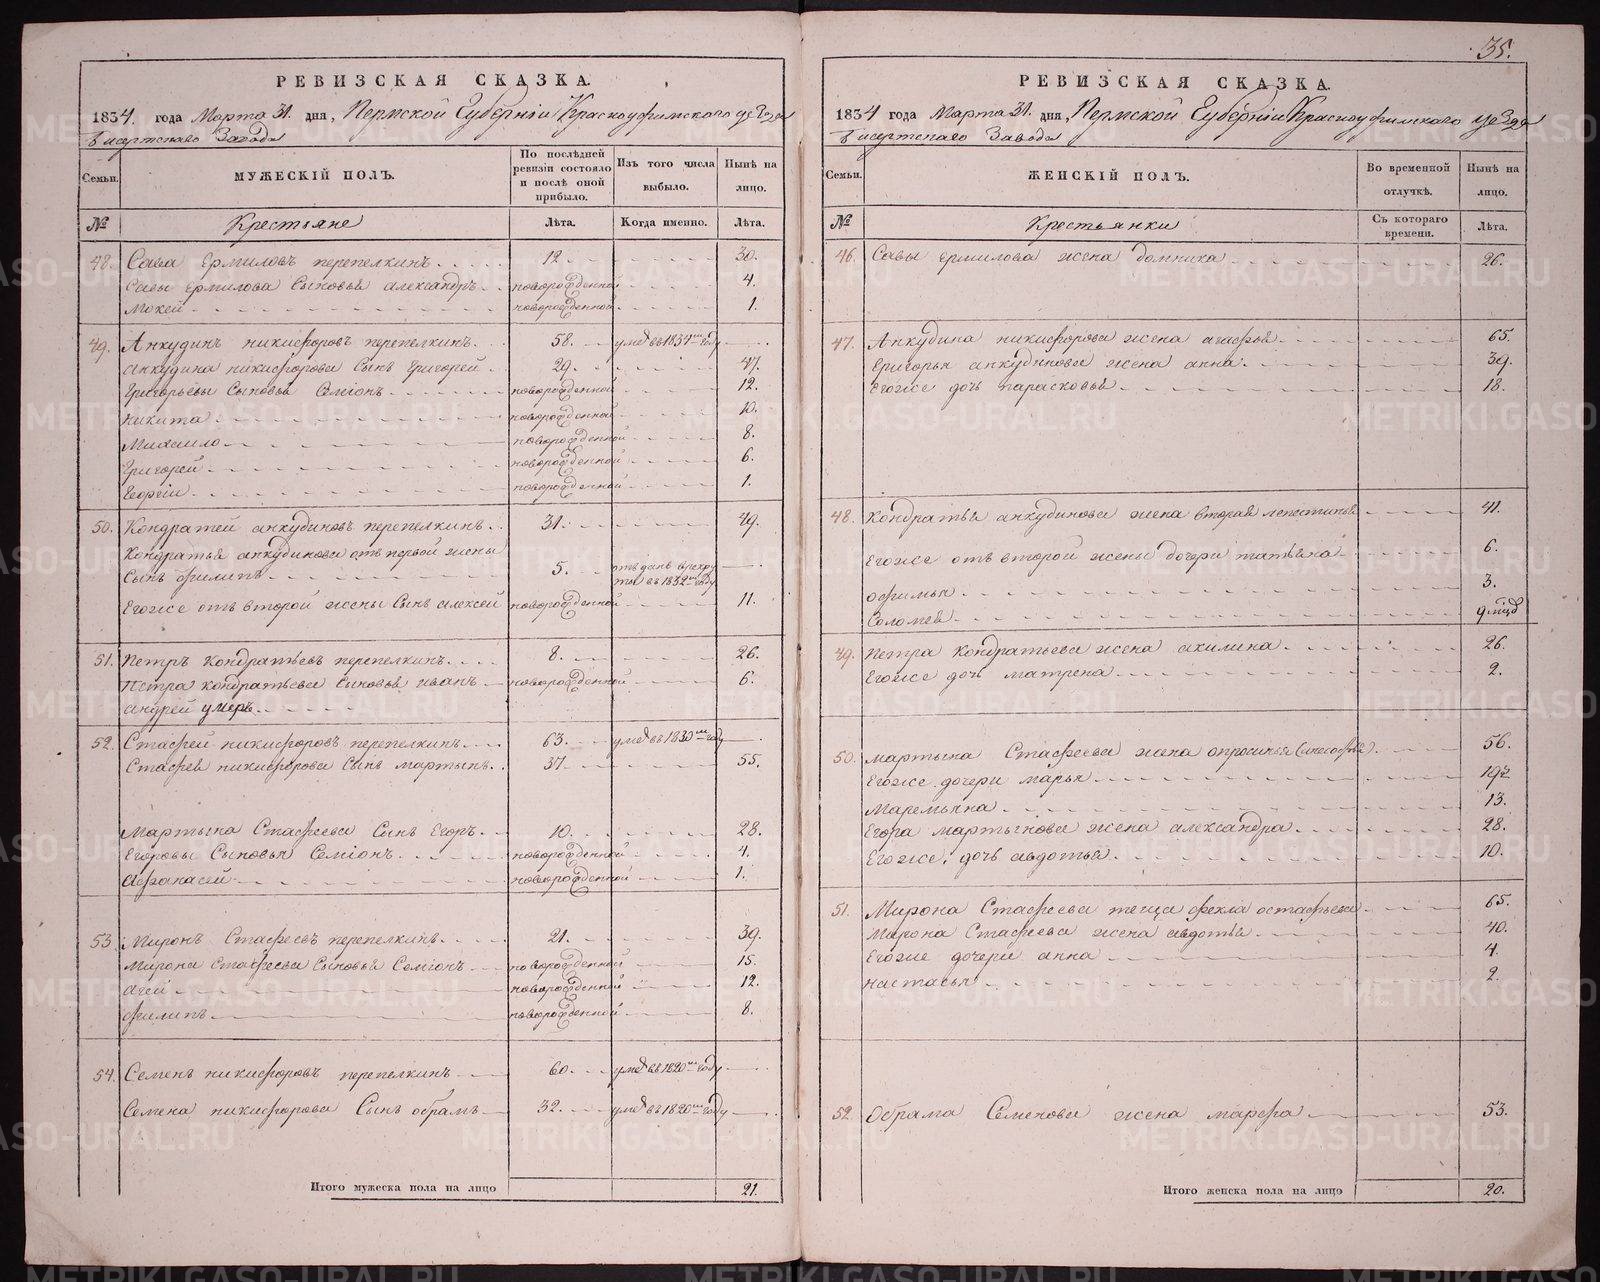 РЕВИЗСКАЯ СКАЗКА.
1834. года Марта 31. дня, Пермской Губернiи Красноуфимскаго уезда
Бисертскаго Завода
Семьи. МУЖЕСКIЙ ПОЛЪ. По послѣдней ревизiи состояло и послѣ оной прибыло. Изъ того числа выбыло. Нынѣ на лицо.
№ Крестьяне Лѣта. Когда именно. Лѣта.
48. Сава Ермиловъ перепелкинъ 12. 30.
Савы Ермилова Сыновья александръ новорожденной 4.
Мокей новорожденной 1.
49. Анкудинъ никифоровъ перепелкинъ 58. умеръ въ 1834м году
анкудина никифорова Сынъ Григорей 29. 47.
Григорьевы Сыновья Семiонъ новорожденной 12.
никита новорожденной 10.
Михаило новорожденной 8.
Григорей новорожденной 6.
Георгiи новорожденной 1.
50. Кондратей анкудиновъ перепелкинъ 31. 49.
Кондратья анкудинова отъ первой жены
Сынъ филипъ 5. отъданъ в рекруты въ 1832м году
Егоже отъ второй жены Сынъ алексей новорожденной 11.
51. Петръ кондратьевъ перепелкинъ 8. 26.
Петра кондратьева Сыновья иванъ новорожденной 6.
андрей умеръ
52. Стафей никифоровъ перепелкинъ 63. умеръ въ 1830м году
Стафея никифорова Сынъ мартынъ 37. 55.
Мартына Стафеева Сынъ Егоръ 10. 28.
Егоровы Сыновья Семiонъ новорожденной 4.
Афанасей новорожденной 1.
53. Миронъ Стафеевъ перепелкинъ 21. 39.
Мирона Стафеева Сыновья Семiонъ новорожденной 15.
агей новорожденной 12.
филипъ новорожденной 8.
54. Семенъ никифоровъ перепелкинъ 60. умеръ въ 1820м году
Семена никифорова Сынъ обрамъ 32. умеръ въ 1820м году
Итого мужеска пола на лицо 21.
35.
РЕВИЗСКАЯ СКАЗКА.
1834 года Марта 31. дня, Пермской Губернiи Красноуфимскаго уезда
Бисертскаго Завода
Семьи. ЖЕНСКIЙ ПОЛЪ. Во временной отлучкѣ. Нынѣ на лицо.
№ Крестьянки Съ котораго времени. Лѣта.
46. Савы ермилова жена домника 26.
47. Анкудина никифорова жена агафья 65.
Григорья анкудинова жена анна 39.
Егоже дочь парасковья 18.
48. Кондратья анкудинова жена вторая лепестинья 41.
Егоже отъ второй жены дочери татьяна 6.
офимья 3.
Соломея 9 мцѣ
49. Петра Кондратьева жена акилина 26.
Егоже дочь матрена 2.
50. мартына Стафеева жена опросинья 56.
Егоже дочери марья 19
Маремьяна 13.
Егора мартынова жена александра 28.
Егоже дочь авдотья 10.
51. Мирона Стафеева теща фекла остафьева 65.
Мирона Стафеева жена авдотья 40.
Егоже дочери анна 4.
настасья 2.
52. Обрама Семенова жена марфа 53.
Итого женска пола на лицо 20.
METRIKI.GASO-URAL.RU